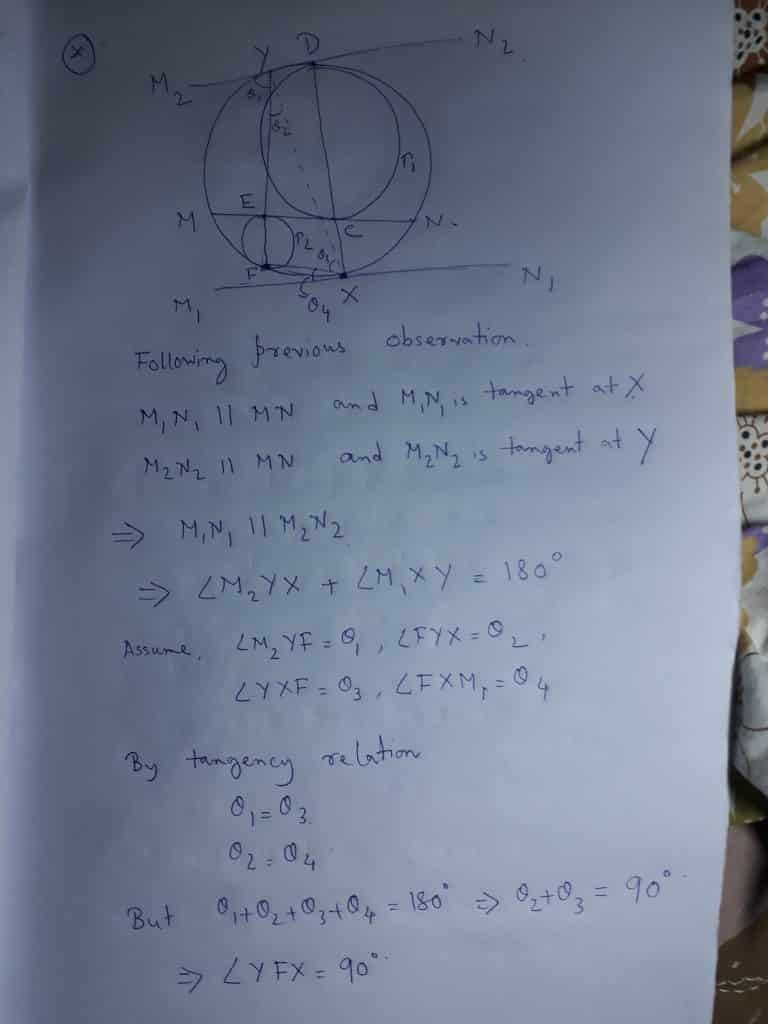 (x)
Y D N₂.
M₂
θ₁
θ₂
r₁
E
M C N.
r₂ θ₃
F
X N₁
M₁ θ₄
Following previous observation.
M₁N₁ || MN and M₁N₁ is tangent at X
M₂N₂ || MN and M₂N₂ is tangent at Y
⇒ M₁N₁ || M₂N₂
⇒ ∠M₂YX + ∠M₁XY = 180°
Assume, ∠M₂YF = θ₁, ∠FYX = θ₂,
∠YXF = θ₃, ∠FXM₁ = θ₄
By tangency relation
θ₁ = θ₃.
θ₂ = θ₄
But θ₁+θ₂+θ₃+θ₄ = 180° ⇒ θ₂+θ₃ = 90°.
⇒ ∠YFX = 90°.